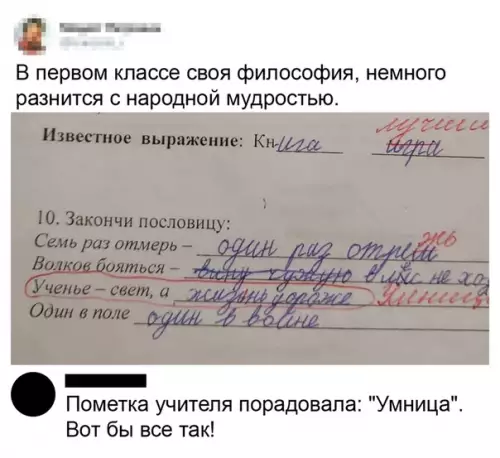 В первом классе своя философия, немного
разнится с народной мудростью.
лучший
Известное выражение: Книга игра
10. Закончи пословицу:
Семь раз отмерь – один раз отрежь
Волков бояться – в лес не хо
Ученье – свет, а жизнь дороже Умница
Один в поле один в воине
Пометка учителя порадовала: "Умница".
Вот бы все так!